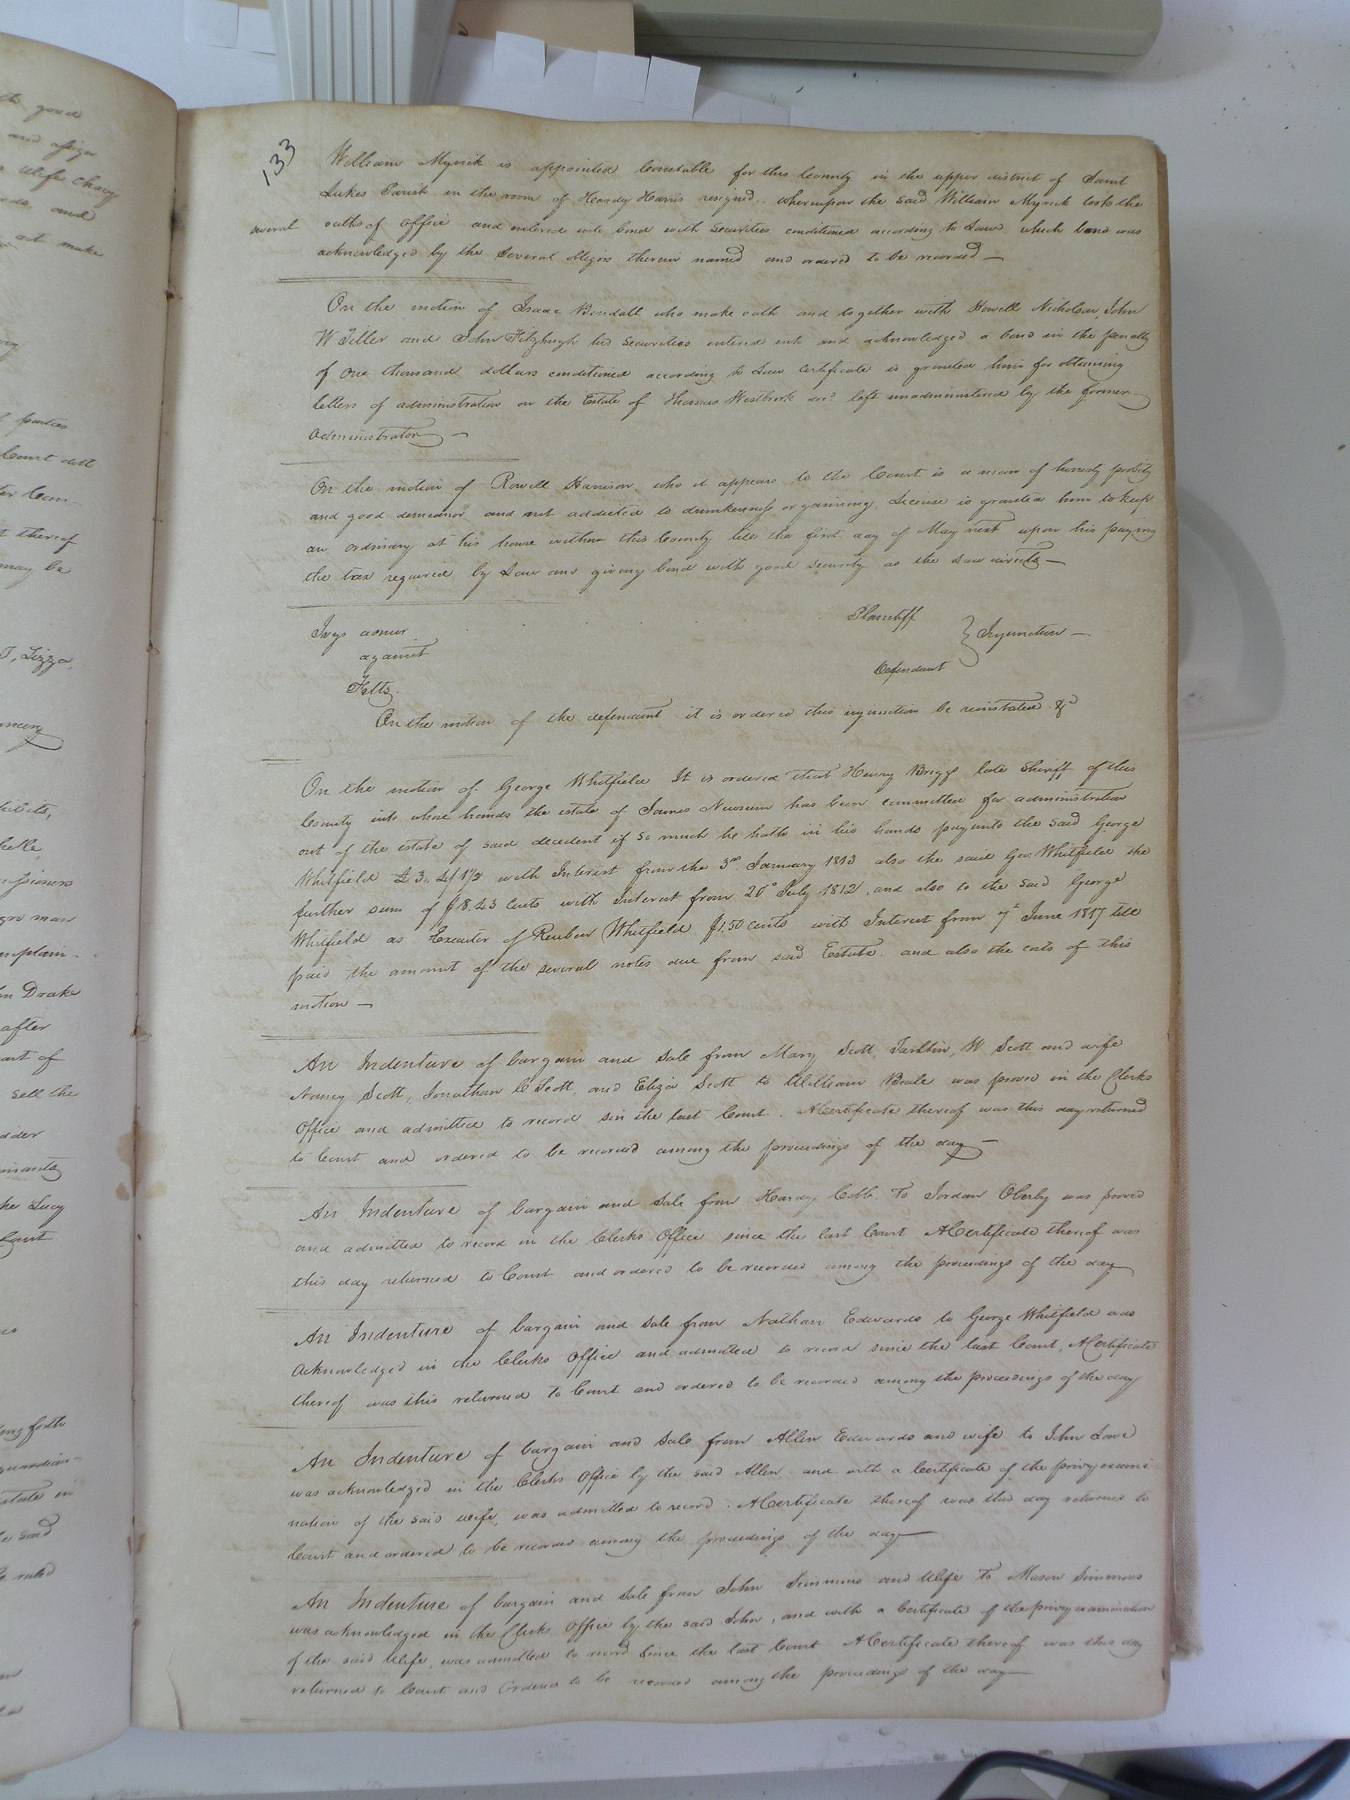 133
William Myrick is appointed Constable for this County in the upper district of Saint
Lukes Parish in the room of Hardy Harris resigned. whereupon the said William Myrick took the
several oaths of office and entered into bond with securities conditioned according to Law which bond was
acknowledged by the several obligors therein named and ordered to be recorded —
On the motion of Isaac Bendall who make oath and together with Howell Nicholson, John
W Teller and John Fitzhugh his securities entered into and acknowledged a bond in the penalty
of one thousand dollars conditioned according to Law Certificate is granted him for obtaining
letters of administration on the Estate of Thomas Westbrook decd. left unadministered by the former
administrator —
On the motion of Rowell Harrison, who it appears to the Court is a man of honesty probity
and good demeanor and not addicted to drunkenness or gaming, License is granted him to keep
an ordinary at his house within this County till the first day of May next upon his paying
the tax required by Law and giving bond with good security as the Law directs —
Ivys admor. Plaintiff
against } Injunction —
Felts. Defendant
On the motion of the defendant it is ordered this injunction be reinstated &c
On the motion of George Whitfield It is ordered that Henry Briggs late Sheriff of this
County into whose hands the estate of James Newsum has been committed for administration
out of the estate of said decedent if so much he hath in his hands pay unto the said George
Whitfield £3.. 4/1½ with Interest from the 3rd January 1813 also the said Geo. Whitfield the
further sum of $8.43 Cents with Interest from 20th July 1812, and also to the said George
Whitfield as Executor of Reuben Whitfield $1.50 cents with Interest from 7th June 1817 till
paid the amount of the several notes due from said Estate. and also the costs of this
motion —
An Indenture of bargain and sale from Mary Scott, W. Scott and wife
Nancy Scott, Jonathan C Scott, and Eliza Scott to William Beale was proved in the Clerks
Office and admitted to record sin the last Court. A Certificate thereof was this day returned
to Court and ordered to be recorded among the proceedings of the day —
An Indenture of bargain and sale from Hardy Cobb To Jordan Oberby was proved
and admitted to record in the Clerks Office since the last Court A Certificate thereof was
this day returned to Court and ordered to be recorded among the proceedings of the day
An Indenture of bargain and sale from Nathan Edwards to George Whitfield was
acknowledged in the Clerks Office and admitted to record since the last Court, A Certificate
thereof was this returned to Court and ordered to be recorded among the proceedings of the day
An Indenture of bargain and sale from Allen Edwards and wife to John Love
was acknowledged in the Clerks Office by the said Allen, and with a Certificate of the privy exami
nation of the said wife, was admitted to record. A Certificate thereof was this day returned to
Court and ordered to be recorded among the proceedings of the day —
An Indenture of bargain and sale from John Simmons and Wife To Mason Simmons
was acknowledged in the Clerks Office by the said John, and with a Certificate of the privy examination
of the said Wife, was admitted to record Since the last Court A Certificate thereof was this day
returned to Court and Ordered to be recorded among the proceedings of the day —